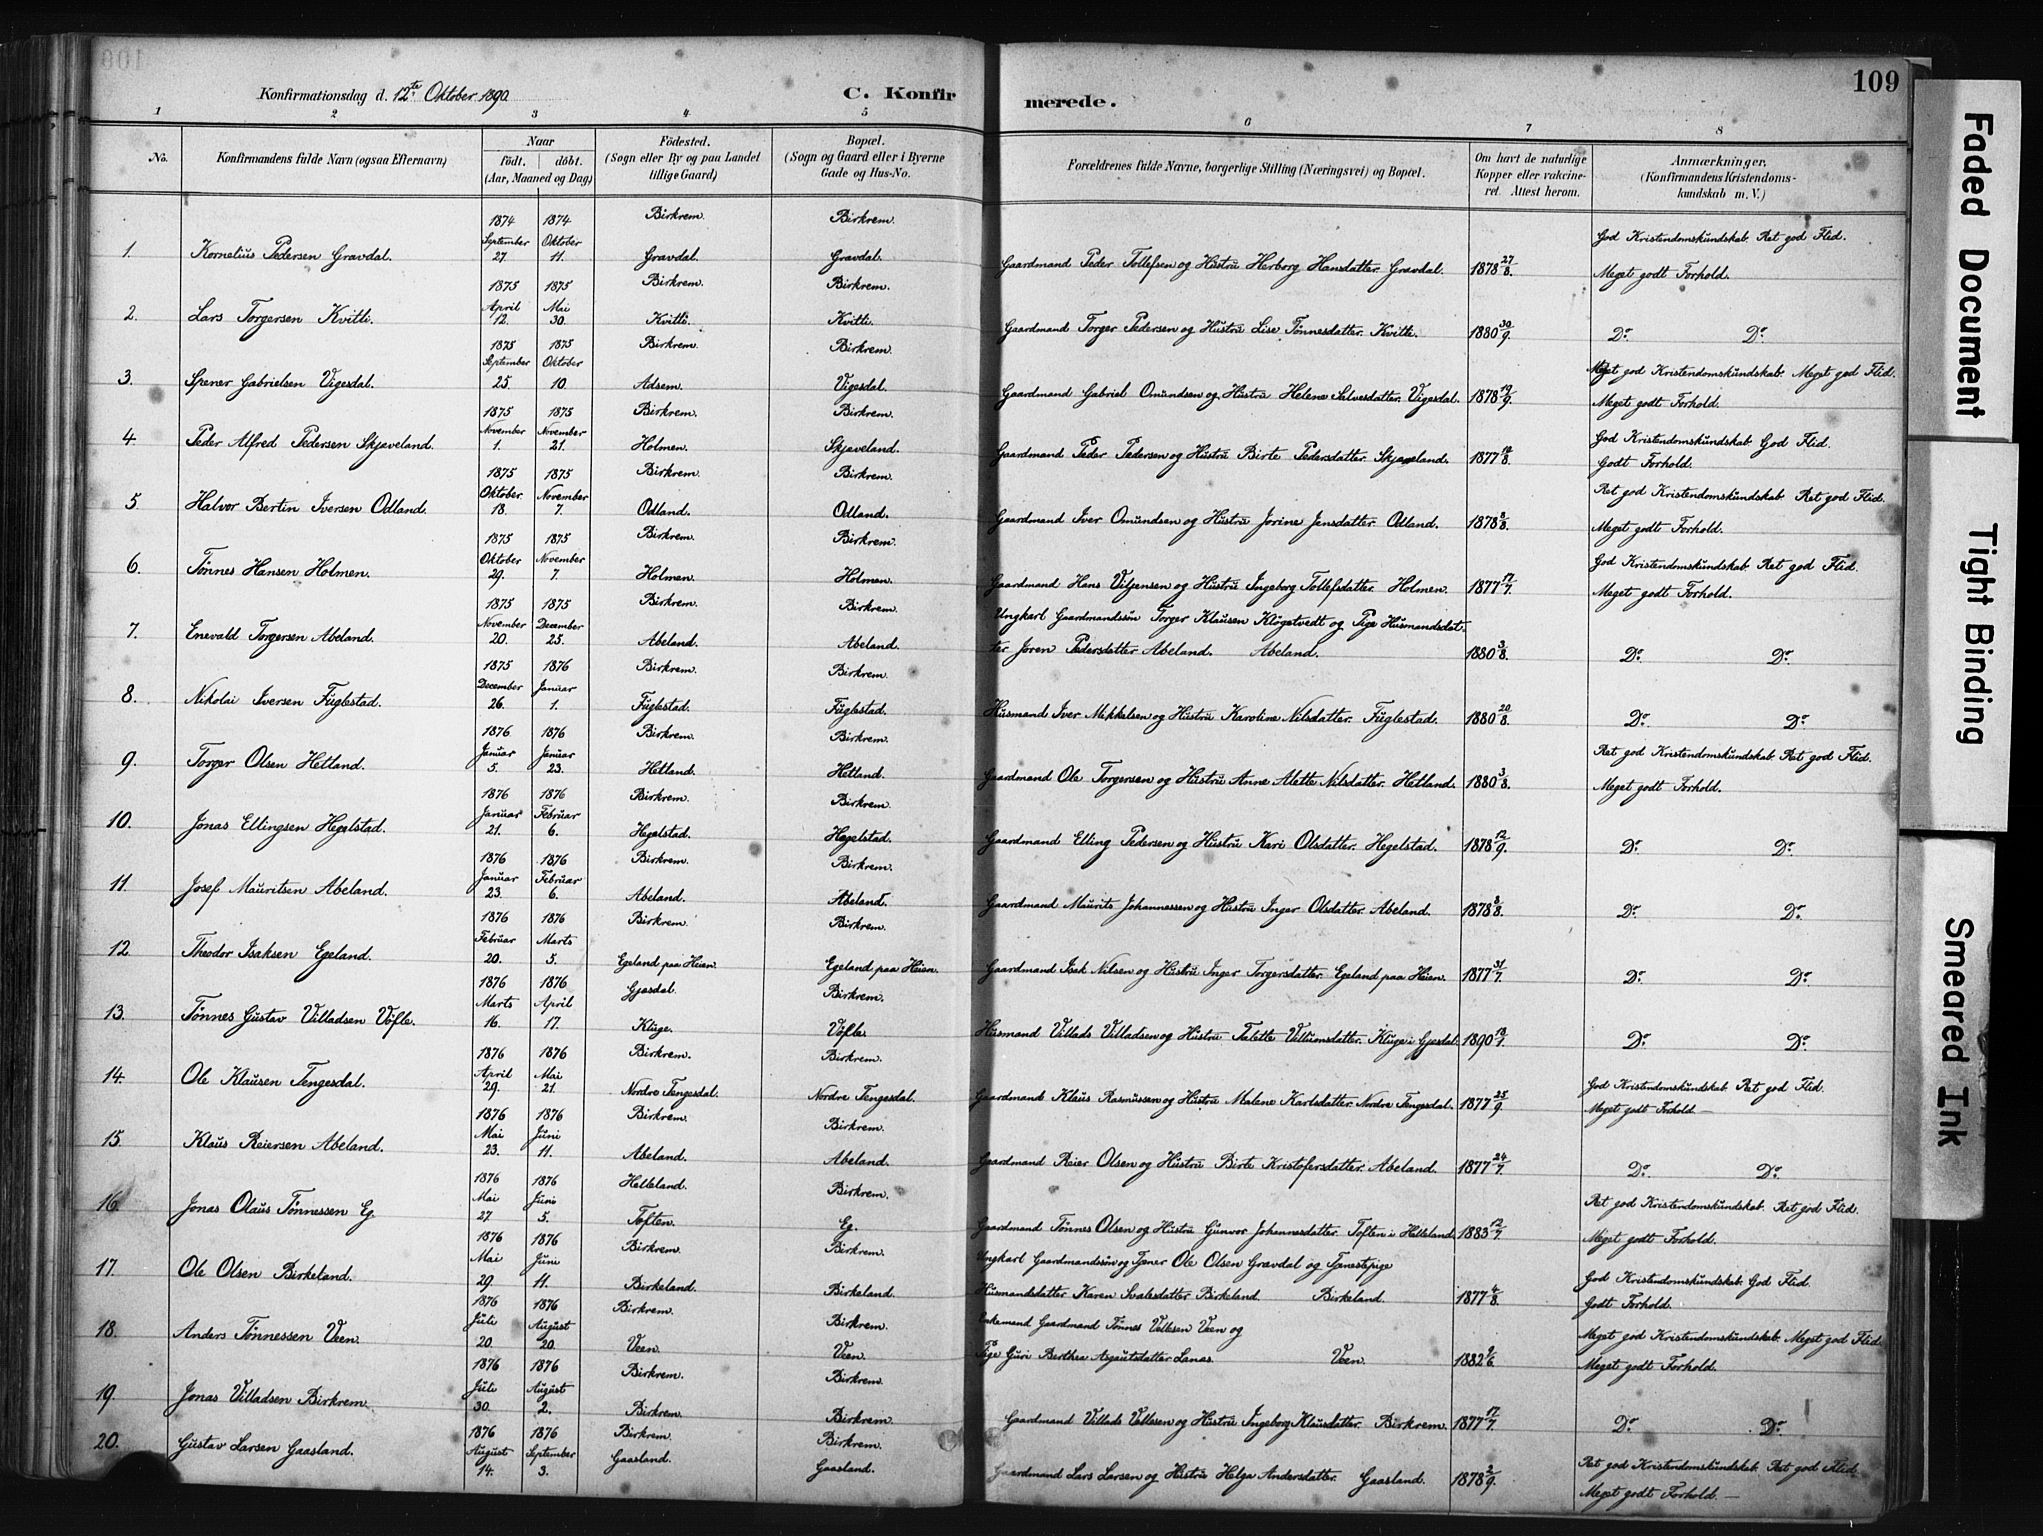 109
Konfirmationsdag d. 12te Oktober 1890.
C. Konfirmerede.
1 2 3 4 5 6 7 8
No.
Konfirmandens fulde Navn (ogsaa Efternavn)
Naar
födt. döbt.
(Aar, Maaned og Dag)
Födested.
(Sogn eller By og paa Landet
tillige Gaard)
Bopæl.
(Sogn og Gaard eller i Byerne
Gade og Hus-No.
Forældrenes fulde Navne, borgerlige Stilling (Næringsvei) og Bopæl.
Om havt de naturlige
Kopper eller vakcine-
ret. Attest herom.
Anmærkninger.
(Konfirmandens Kristendoms-
kundskab m. V.)
1874 1874 Birkrem. Birkrem.
September Oktober God Kristendomskundskab. Ret god Flid.
1. Kornelius Pedersen Gravdal. 27 11. Gravdal. Gravdal. Gaardmand Peder Tollefsen og Hustru Herborg Hansdatter. Gravdal. 1878 27/8. Meget godt Forhold.
1875 1875 Birkrem. Birkrem.
April Mai
2. Lars Torgersen Kvitli. 12. 30. Kvitli. Kvitli. Gaardmand Torger Pedersen og Hustru Lise Tønnesdatter. Kvitli. 1880 30/9. Do. Do.
1875 1875 Birkrem. Birkrem.
September Oktober Meget god Kristendomskundskab. Meget god Flid.
3. Spener Gabrielsen Vigesdal. 25 10. Adsem. Vigesdal. Gaardmand Gabriel Omundsen og Hustru Helene Salvesdatter. Vigesdal. 1878 19/9. Meget godt Forhold.
1875 1875 Birkrem. Birkrem.
November November God Kristendomskundskab. God Flid.
4 Peder Alfred Pedersen Skjæveland. 1. 21. Holmen. Skjæveland. Gaardmand Peder Pedersen og Hustru Birte Pedersdatter. Skjæveland. 1877 /8. Godt Forhold.
1875 1875 Birkrem. Birkrem.
Oktober November Ret god Kristendomskundskab. Ret god Flid.
5. Halvor Bertin Iversen Odland. 18. 7. Odland. Odland. Gaardmand Iver Omundsen og Hustru Jorine Jensdatter. Odland. 1878 8/8. Meget godt Forhold.
1875 1875 Birkrem. Birkrem.
Oktober November God Kristendomskundskab. Ret god Flid.
6. Tønnes Hansen Holmen. 29. 7. Holmen. Holmen. Gaardmand Hans Villumsen og Hustru Ingeborg Tollefsdatter. Holmen. 1877 17/7. Meget godt Forhold.
1875 1875 Birkrem. Birkrem. Ungkarl Gaardmandssøn Torger Klausen Kløgetvedt og Pige Husmandsdat-
November December
7. Enevald Torgersen Abeland. 20. 25. Abeland. Abeland. ter Joren Pedersdatter Abeland. Abeland. 1880 3/8. Do. Do.
1875 1876 Birkrem. Birkrem.
December Januar
8. Nikolai Iversen Fuglestad. 26. 1. Fuglestad. Fuglestad. Husmand Iver Mikkelsen og Hustru Karoline Nilsdatter. Fuglestad. 1880 20/8. Do. Do.
1876 1876 Birkrem. Birkrem.
Januar Januar Ret god Kristendomskundskab. Ret god Flid.
9. Torger Olsen Hetland. 5. 23. Hetland. Hetland. Gaardmand Ole Torgersen og Hustru Anne Alette Nilsdatter. Hetland. 1880 3/8. Meget godt Forhold.
1876 1876 Birkrem. Birkrem.
Januar Februar
10. Jonas Ellingsen Hegelstad. 21. 6. Hegelstad. Hegelstad. Gaardmand Elling Pedersen og Hustru Kari Olsdatter. Hegelstad. 1878 12/9. Do. Do.
1876 1876 Birkrem. Birkrem.
Januar Februar
11. Josef Mauritsen Abeland. 23. 6. Abeland. Abeland. Gaardmand Maurits Johannessen og Hustru Inger Olsdatter. Abeland. 1878 8/8. Do. Do.
1876 1876 Birkrem. Birkrem.
Februar Marts
12. Theodor Isaksen Egeland. 20. 5. Egeland paa Heien. Egeland paa Heien. Gaardmand Isak Nilsen og Hustru Inger Torgersdatter. Egeland paa Heien. 1877 31/7. Do. Do.
1876 1876 Gjesdal. Birkrem.
Marts April
13. Tønnes Gustav Villadsen Vøfle. 16. 17. Kluge. Vøfle. Husmand Villads Villadsen og Hustru Talette Villumsdatter. Kluge i Gjesdal. 1890 13/7. Do. Do.
1876 1876 Birkrem. Birkrem.
April Mai God Kristendomskundskab. Ret god Flid.
14. Ole Klausen Tengesdal. 29. 21. Nordre Tengesdal. Nordre Tengesdal. Gaardmand Klaus Rasmussen og Hustru Malene Karlsdatter. Nordre Tengesdal. 1877 25/9. Meget godt Forhold
1876 1876 Birkrem. Birkrem.
Mai Juni
15. Klaus Reiersen Abeland. 23. 11. Abeland. Abeland. Gaardmand Reier Olsen og Hustru Birte Kristofersdatter. Abeland. 1877 24/7. Do. Do.
1876 1876 Helleland. Birkrem.
Mai Juni Ret god Kristendomskundskab. Ret god Flid.
16. Jonas Olaus Tønnessen Eg. 27. 5. Toften. Eg. Gaardmand Tønnes Olsen og Hustru Gunvor Johannesdatter. Toften i Helleland. 1883 12/7. Meget godt Forhold.
1876 1876 Birkrem. Birkrem. Ungkarl Gaardmandssøn og Tjener Ole Olsen Gravdal og Tjenestepige
Mai Juni God Kristendomskundskab. God Flid.
17. Ole Olsen Birkeland. 29. 11. Birkeland. Birkeland. Husmandsdatter Karen Svalesdatter Birkeland Birkeland. 1877 4/8. Godt Forhold.
1876 1876 Birkrem. Birkrem. Enkemand Gaardmand Tønnes Vellesen Veen og
Juli August Meget god Kristendomskundskab. Meget god Flid.
18. Anders Tønnessen Veen. 20. 20. Veen. Veen. Pige Guri Berthea Asgautsdatter Lanes. Veen. 1882 9/6. Meget godt Forhold.
1876 1876 Birkrem. Birkrem.
Juli August
19. Jonas Villadsen Birkrem. 30. 2. Birkrem. Birkrem. Gaardmand Villads Vellesen og Hustru Ingeborg Klausdatter. Birkrem. 1877 17/7. Do. Do.
1876 1876 Birkrem. Birkrem.
August September Ret god Kristendomskundskab. Ret god Flid.
20. Gustav Larsen Gaasland. 14. 3. Gaasland. Gaasland. Gaardmand Lars Larsen og Hustru Helga Andersdatter. Gaasland. 1878 2/9. Meget godt Forhold.
Faded Document
Tight Binding
Smeared Ink